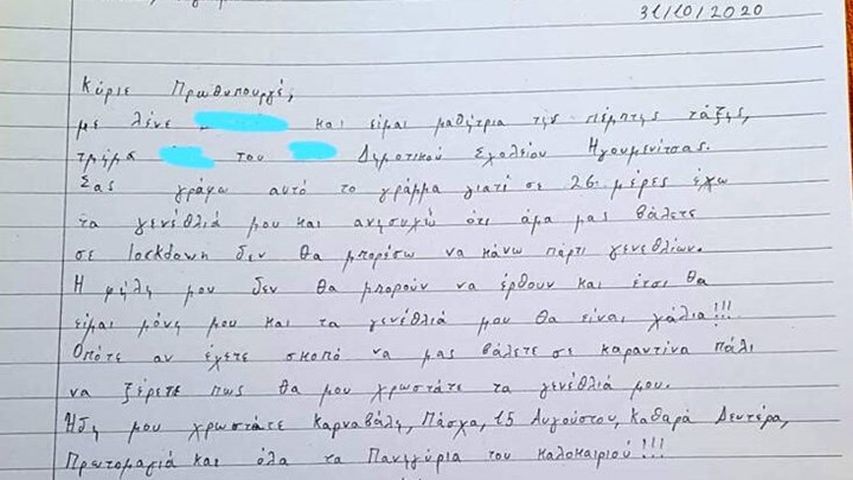 31/10/2020
Κύριε Πρωθυπουργέ,
με λένε και είμαι μαθήτρια της πέμπτης τάξης,
τμήμα του Δημοτικού Σχολείου Ηγουμενίτσας.
Σας γράφω αυτό το γράμμα γιατί σε 26 μέρες έχω
τα γενέθλιά μου και ανησυχώ ότι άμα μας βάλετε
σε lockdown δεν θα μπορέσω να κάνω πάρτι γενεθλίων.
Η φίλη μου δεν θα μπορούν να έρθουν και έτσι θα
είμαι μόνη μου και τα γενέθλιά μου θα είναι χάλια!!!
Οπότε αν έχετε σκοπό να μας βάλετε σε καραντίνα πάλι
να ξέρετε πως θα μου χρωστάτε τα γενέθλιά μου.
Ήδη μου χρωστάτε Καρναβάλη, Πάσχα, 15 Αυγούστου, Καθαρά Δευτέρα,
Πρωτομαγιά και όλα τα Πανηγύρια του καλοκαιριού!!!